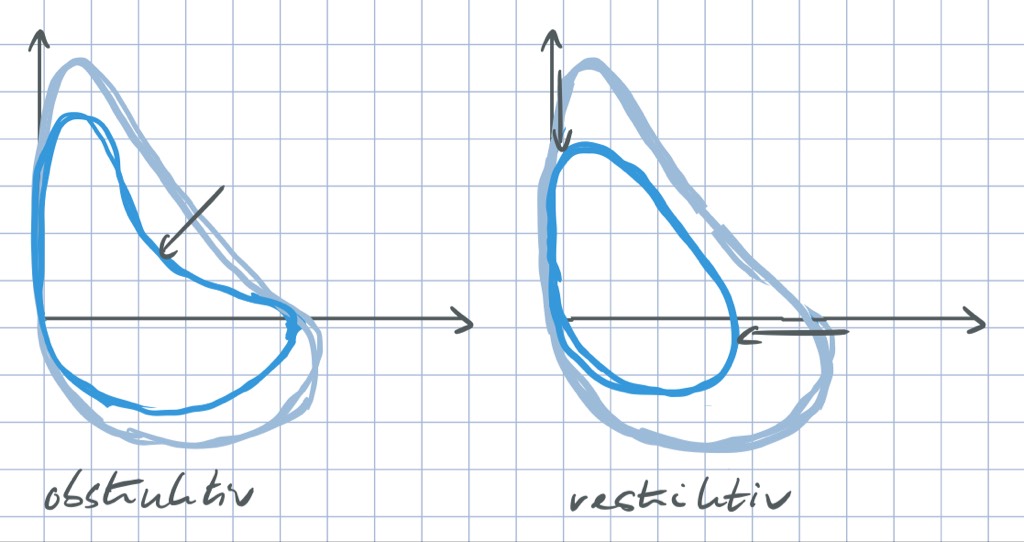 obstruktiv
restriktiv